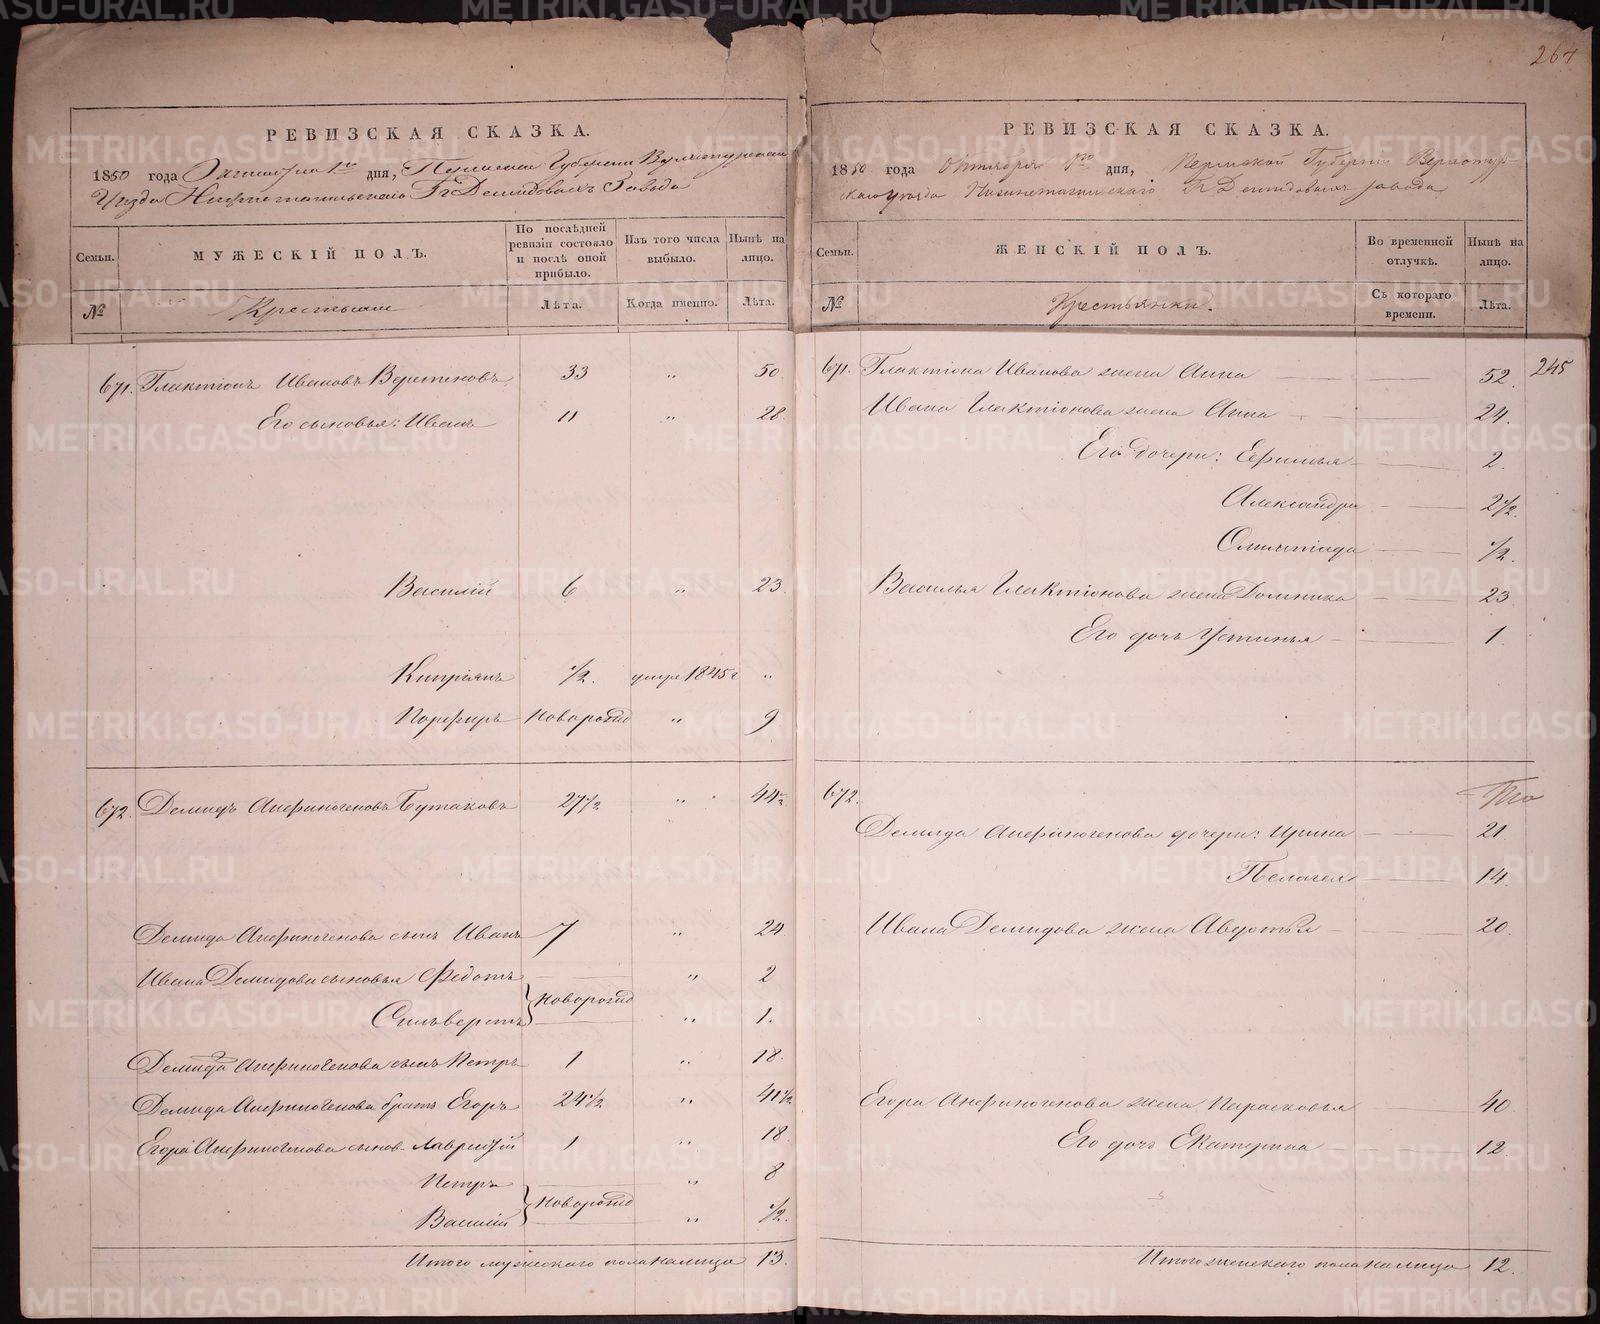 264
РЕВИЗСКАЯ СКАЗКА.
1850 года Октября 1го дня, Пермской Губернии Верхотурскаго
Уѣзда Нижнетагильскаго Гг Демидовыхъ Завода
Семьи. МУЖЕСКІЙ ПОЛЪ. По послѣдней ревизіи состояло и послѣ оной прибыло. Изъ того числа выбыло. Нынѣ на лицо.
№ Крестьяне Лѣта. Когда именно. Лѣта.
671. Галактіонъ Ивановъ Веретеновъ 33 " 50
Его сыновья: Иванъ 11 " 28
Василій 6 " 23.
Кипріянъ 1/2. умре 1845 г "
Порфиръ Новорожд " 9
672. Демидъ Анфиногеновъ Бутаковъ 27 1/2 " 44 1/2
Демида Анфиногенова сынъ Иванъ 7 " 24
Ивана Демидова сыновья Федотъ " 2
Новорожд
Сильверстъ " 1.
Демида Анфиногенова сынъ Петръ 1 " 18.
Демида Анфиногенова братъ Егоръ 24 1/2 " 41 1/2
Егора Анфиногенова сынов. Лаврентій 1 " 18
Петръ " 8
Новорожд
Василій " 1/2.
Итого мужескаго пола налицо 13.
РЕВИЗСКАЯ СКАЗКА.
1850 года Октября 1го дня, Пермской Губерніи Верхотур-
скаго уѣзда Нижнетагильскаго Гг Демидовыхъ завода
Семьи. ЖЕНСКІЙ ПОЛЪ. Во временной отлучкѣ. Нынѣ на лицо.
№ Крестьянки. Съ котораго времени. Лѣта.
671. Галактіона Иванова жена Анна 52. 245
Ивана Галактіонова жена Анна 24.
Его дочери: Ефимья 2.
Александра 2 1/2.
Олимпіада 1/2.
Василья Галактіонова жена Домника 23
Его дочь Устинья 1.
672.
Демида Анфиногенова дочери: Ирина 21
Пелагея 14.
Ивана Демидова жена Авдотья 20.
Егора Анфиногенова жена Парасковья 40
Его дочь Екатерина 12.
Итого женскаго пола налицо 12.
METRIKI.GASO-URAL.RU